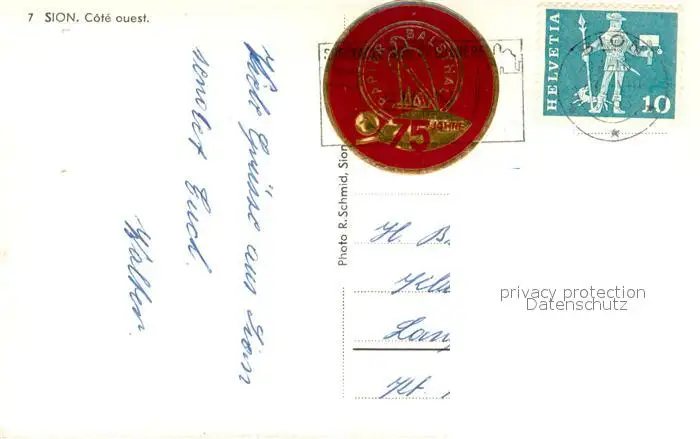 7 SION. Côté ouest.
Viele Grüsse aus Sion
sendet Euch
Walter.
Photo R. Schmid, Sion
PAPIER BALSTHAL
75 JAHRE
HELVETIA
10
H. B
privacy protection
Datenschutz